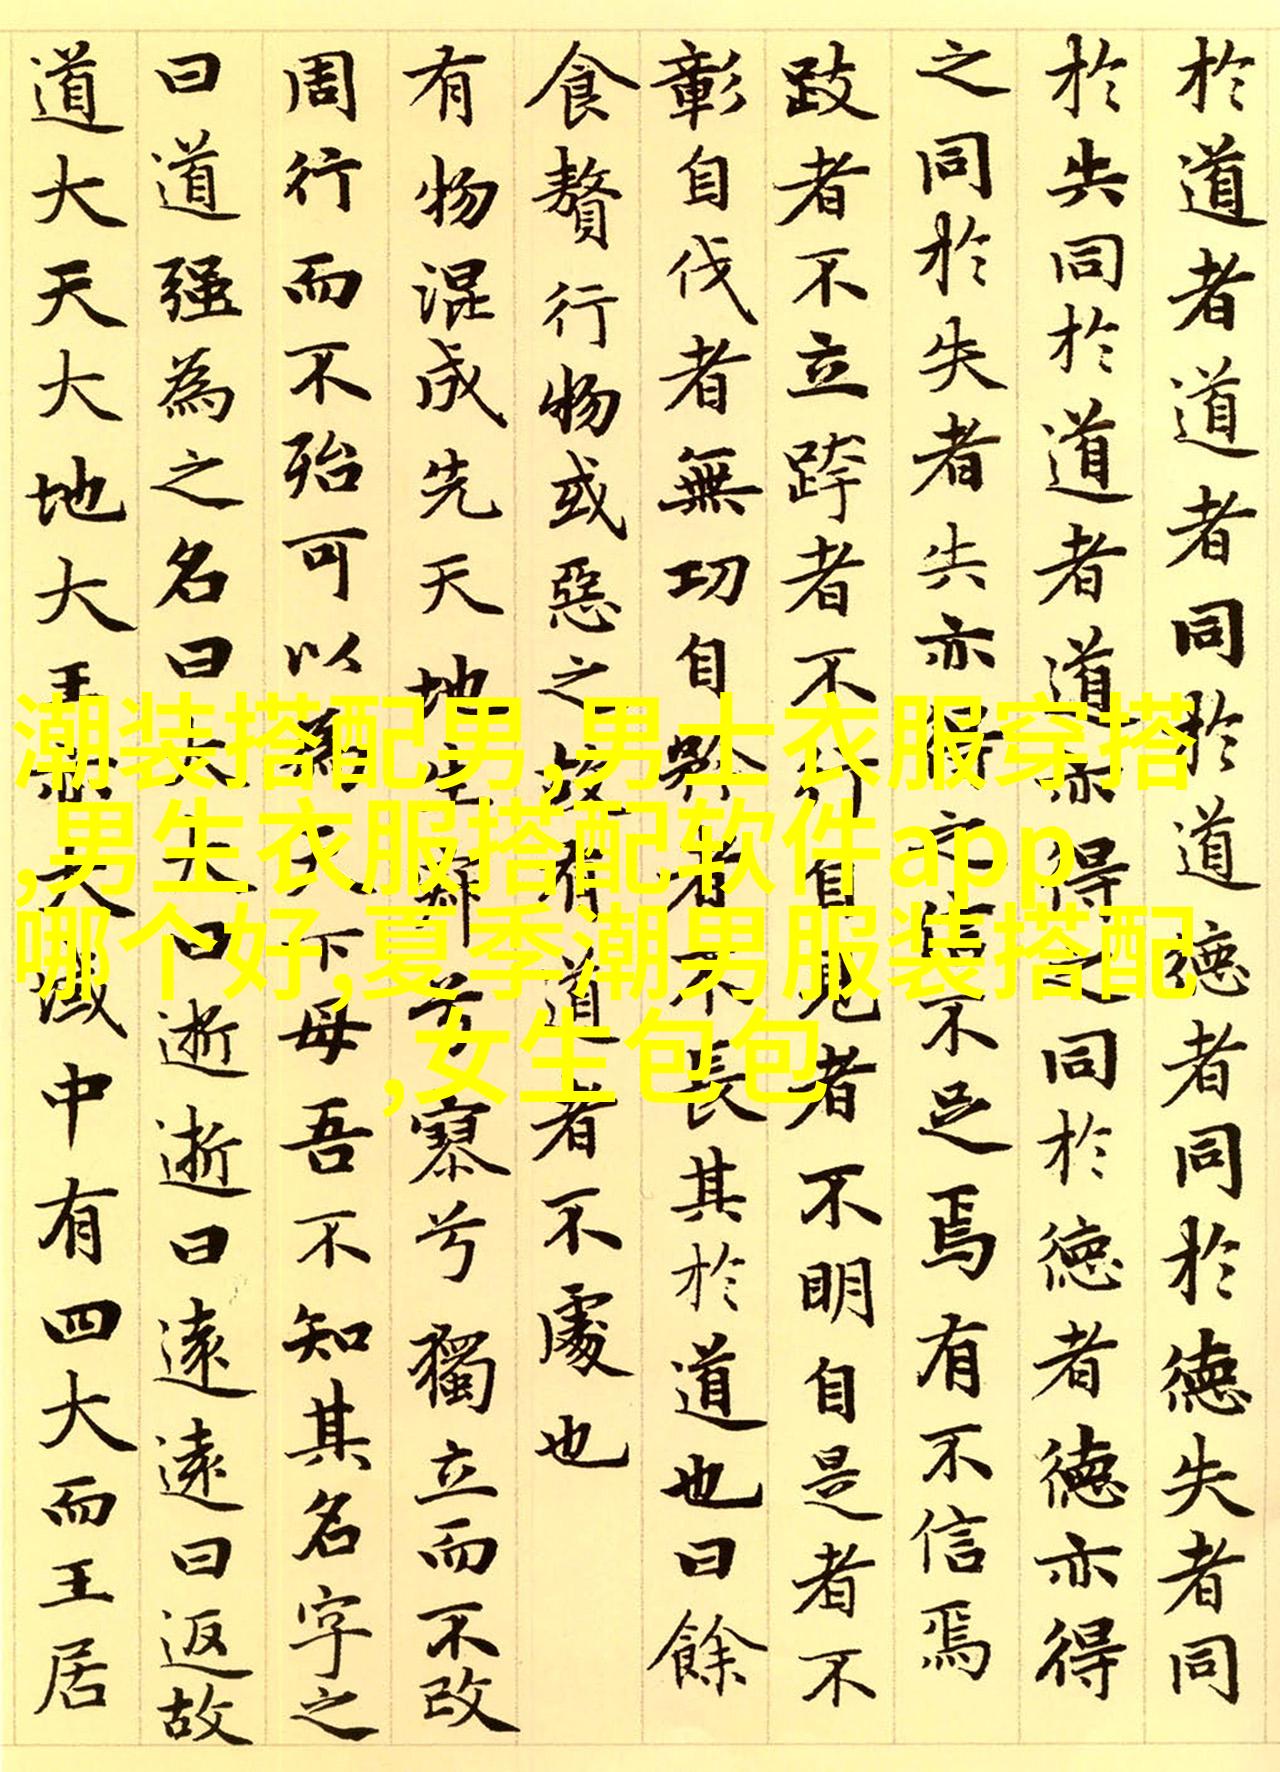 於道者道者同於道德者同於德失者同
於失同於道者道亦得之同於德者德亦得
之同於失者失亦得之信不足焉有不信焉
跂者不立跨者不行自見者不明自是者不
彰自伐者無功自矜者不長其於道也曰餘
食贅行物或惡之故有道者不處也
有物混成先天地生寂兮寥兮獨立而不改
周行而不殆可以為天下母吾不知其名字之
曰道强為之名曰大大曰逝逝曰遠遠曰返故
道大天大地大王亦大域中有四大而王居
潮装搭配男,男士衣服穿搭
,男生衣服搭配软件app
哪个好,夏季潮男服装搭配
,女生包包